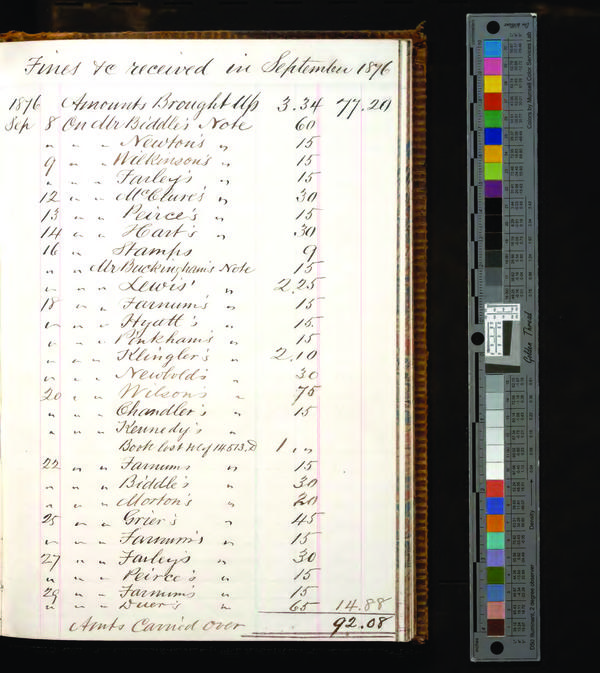 Fines &c received in September 1876
1876 Amounts Brought Up 3.34 77.20
Sep 8 On Mr Biddle's Note 60
" " " Newton's " 15
9 " " Wilkinson's " 15
" " " Farley's " 15
12 " " McClure's " 30
13 " " Peirce's " 15
14 " " Hart's " 30
16 " Stamps 9
" " Mr Buckingham's Note 15
" " " Lewis' " 2.25
18 " " Farnum's " 15
" " " Hyatt's " 15
" " " Pinkham's " 15
" " " Klingler's " 2.10
" " " Newbold's " 30
20 " " Wilson's " 75
" " " Chandler's " 15
" " " Kennedy's "
Book lost No 14513, D 1. "
22 " " Farnums " 15
" " " Biddle's " 30
" " " Morton's " 20
25 " " Grier's " 45
" " " Farnum's " 15
27 " " Farley's " 30
" " " Peirce's " 15
29 " " Farnum's " 15
" " " Duer's " 65 14.88
Amts Carried Over 92.08
Colors by Munsell Color Services Lab
Golden Thread
Density